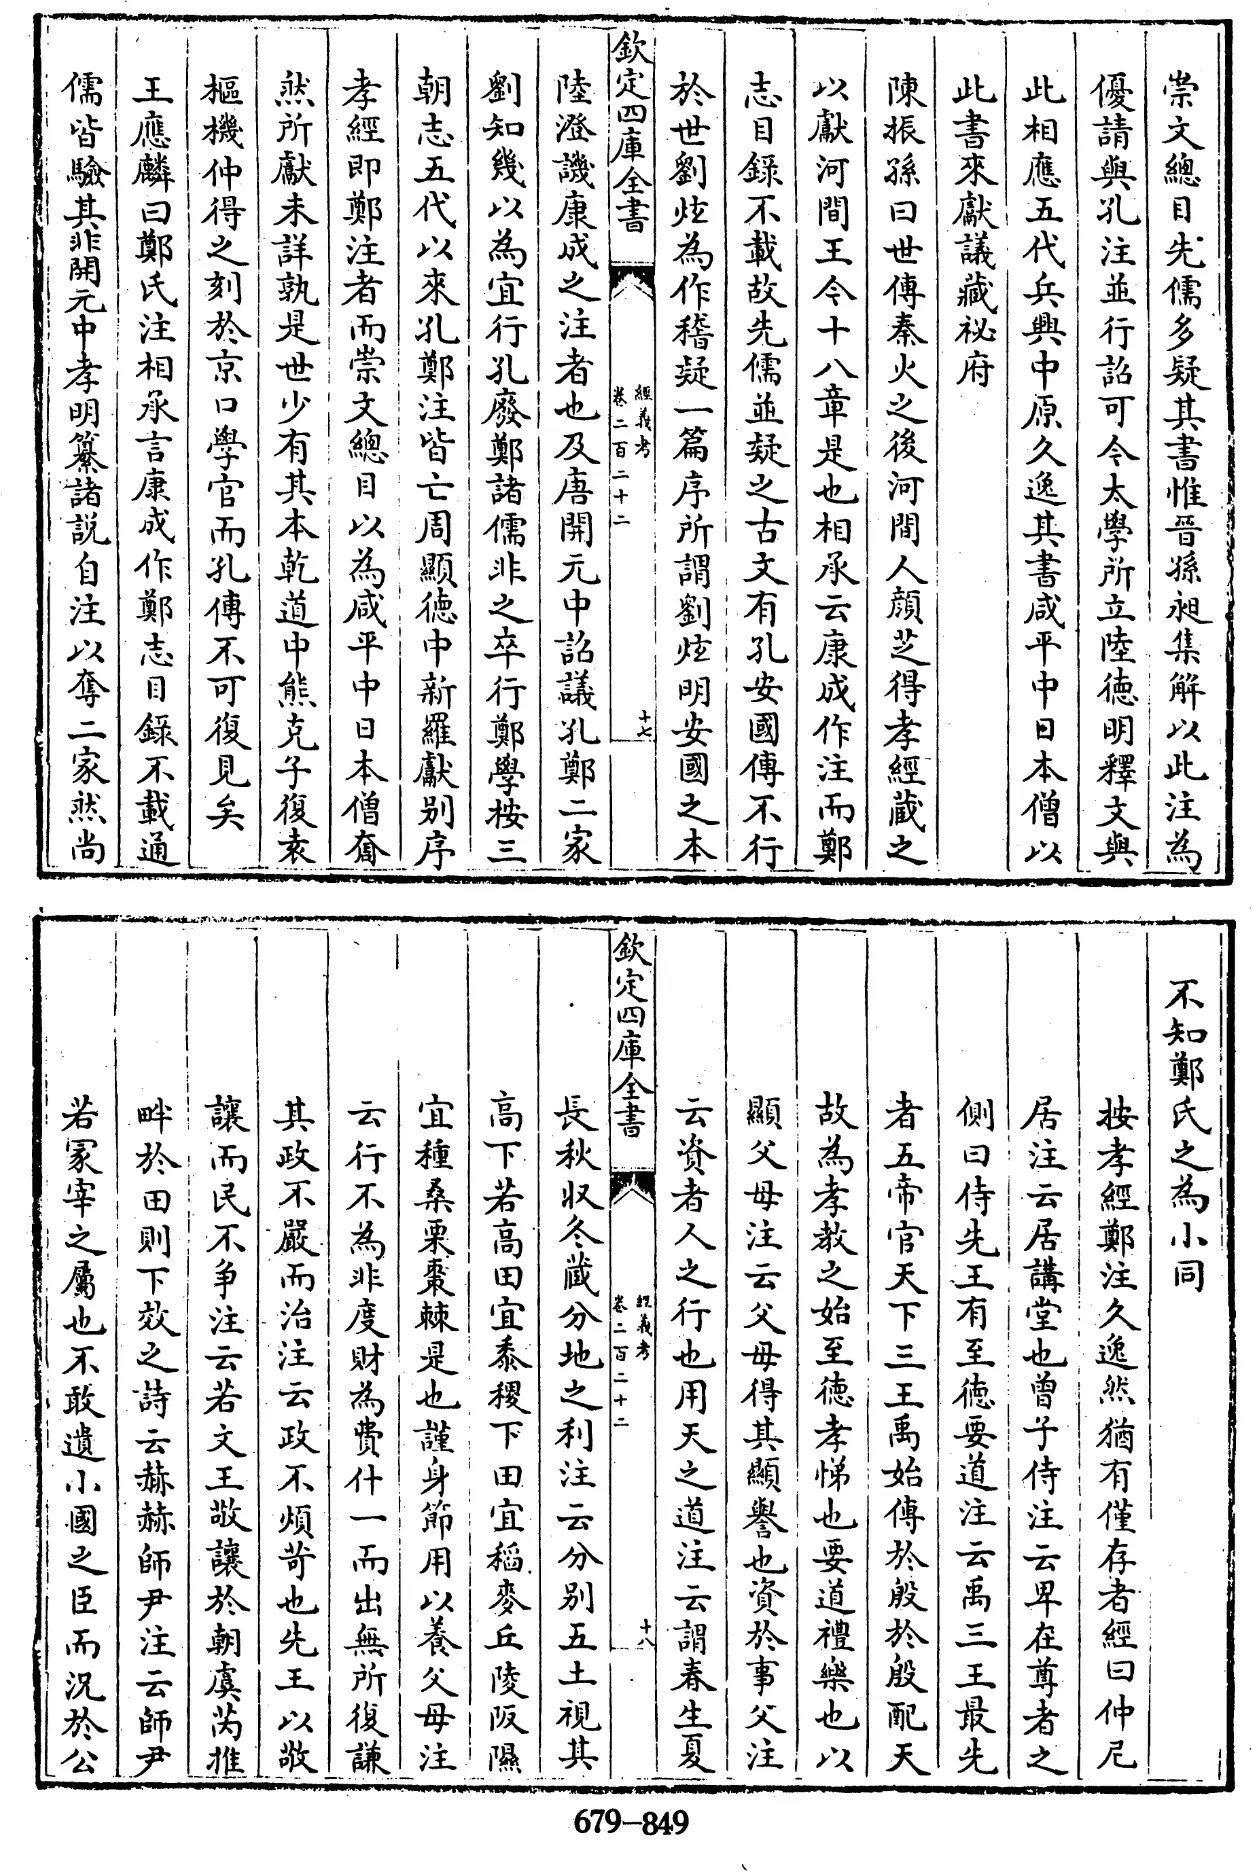 崇文總目先儒多疑其書惟晉孫昶集解以此注為
優請與孔注並行詔可令太學所立陸德明釋文與
此相應五代兵興中原久逸其書咸平中日本僧以
此書來獻議藏祕府
陳振孫曰世傳秦火之後河間人顔芝得孝經藏之
以獻河間王今十八章是也相承云康成作注而鄭
志目錄不載故先儒並疑之古文有孔安國傳不行
於世劉炫為作稽疑一篇序所謂劉炫明安國之本
欽定四庫全書
經義考
卷二百二十二
十七
陸澄譏康成之注者也及唐開元中詔議孔鄭二家
劉知幾以為宜行孔廢鄭諸儒非之卒行鄭學按三
朝志五代以來孔鄭注皆亡周顯德中新羅獻別序
孝經即鄭注者而崇文總目以為咸平中日本僧奝
然所獻未詳孰是世少有其本乾道中熊克子復袁
樞機仲得之刻於京口學官而孔傳不可復見矣
王應麟曰鄭氏注相承言康成作鄭志目錄不載通
儒皆驗其非開元中孝明纂諸説自注以奪二家然尚
不知鄭氏之為小同
按孝經鄭注久逸然猶有僅存者經曰仲尼
居注云居講堂也曾子侍注云卑在尊者之
側曰侍先王有至德要道注云禹三王最先
者五帝官天下三王禹始傳於殷於殷配天
故為孝教之始至德孝悌也要道禮樂也以
顯父母注云父母得其顯譽也資於事父注
云資者人之行也用天之道注云謂春生夏
欽定四庫全書
經義考
卷二百二十二
十八
長秋收冬藏分地之利注云分别五土視其
高下若高田宜黍稷下田宜稻麥丘陵阪隰
宜種桑栗棗棘是也謹身節用以養父母注
云行不為非度財為費什一而出無所復謙
其政不嚴而治注云政不煩苛也先王以敬
讓而民不爭注云若文王敬讓於朝虞芮推
畔於田則下效之詩云赫赫師尹注云師尹
若冢宰之屬也不敢遺小國之臣而況於公
679-849